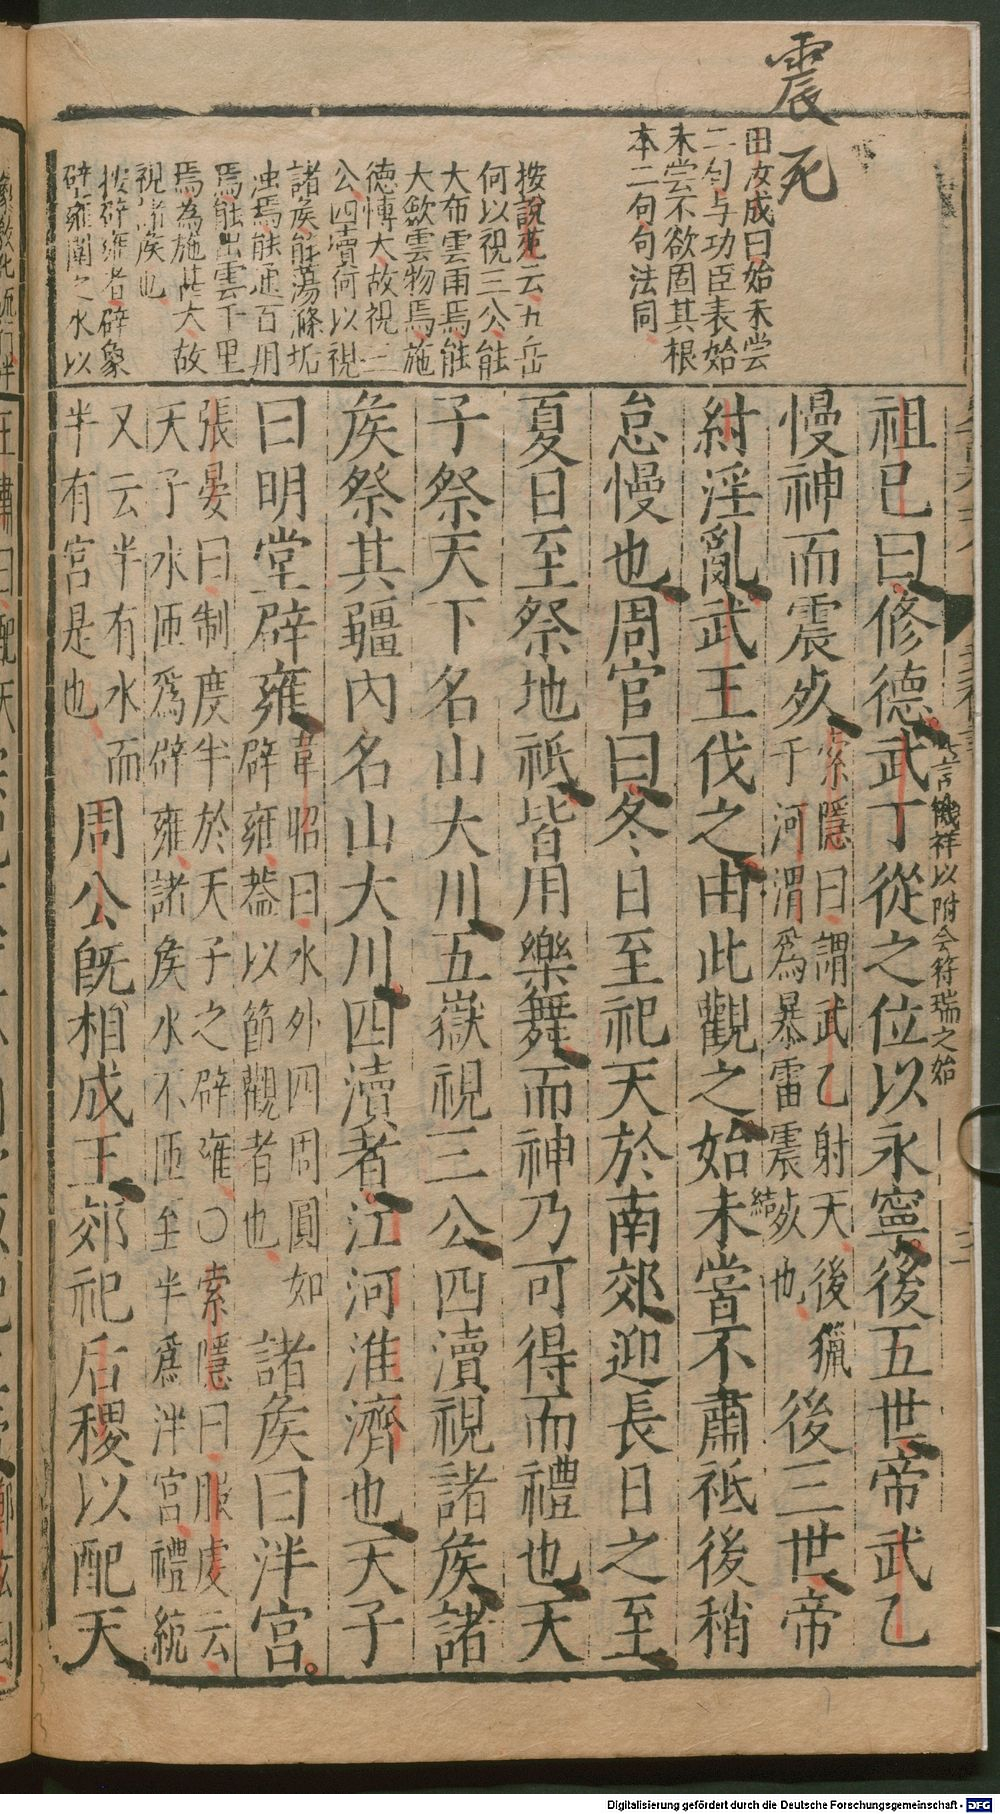 震死
田汝成曰始未尝
二句与功臣表始
未尝不欲固其根
本二句句法同
按說苑云五岳
何以視三公能
大布雲雨焉能
大歛雲物焉施
德博大故視三
公四瀆何以視
諸矦能蕩滌垢
濁焉能通百川
焉能出雲千里
焉為施甚大故
視諸矦也
按辟雍者辟象
辟雍圜之水以
祖已曰修德武丁從之位以永寧後五世帝武乙
言禨祥以附会符瑞之始
慢神而震死
索隱曰謂武乙射天後獵
于河渭爲暴雷震死也
後三世帝
紂淫亂武王伐之由此觀之始未嘗不肅祗後稍
怠慢也周官曰冬日至祀天於南郊迎長日之至
夏日至祭地祇皆用樂舞而神乃可得而禮也天
子祭天下名山大川五嶽視三公四瀆視諸矦諸
矦祭其疆內名山大川四瀆者江河淮濟也天子
曰明堂辟雍
韋昭曰水外四周圓如
辟雍蓋以節觀者也
諸矦曰泮宮
張晏曰制度半於天子之辟雍○索隱曰服虔云
天子水匝爲辟雍諸矦水不匝至半爲泮宮禮統
又云半有水而
半有宮是也
周公既相成王郊祀后稷以配天
Digitalisierung gefördert durch die Deutsche Forschungsgemeinschaft - DFG